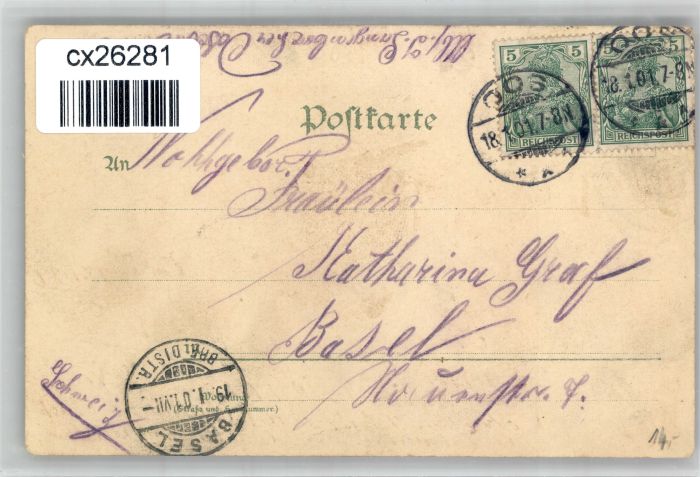 cx26281
5
5
REICHSPOST
REICHSPOST
OOS
18.1.01.7-8N
OOS
18.1.01.7-8N
Postkarte
An Wohlgebor.
Fräulein
Katharina Graf
Basel
Schweiz
Wohnung
(Straße und Hausnummer)
BASEL
BRF. DISTR.
19.1.01.VII-
14.-